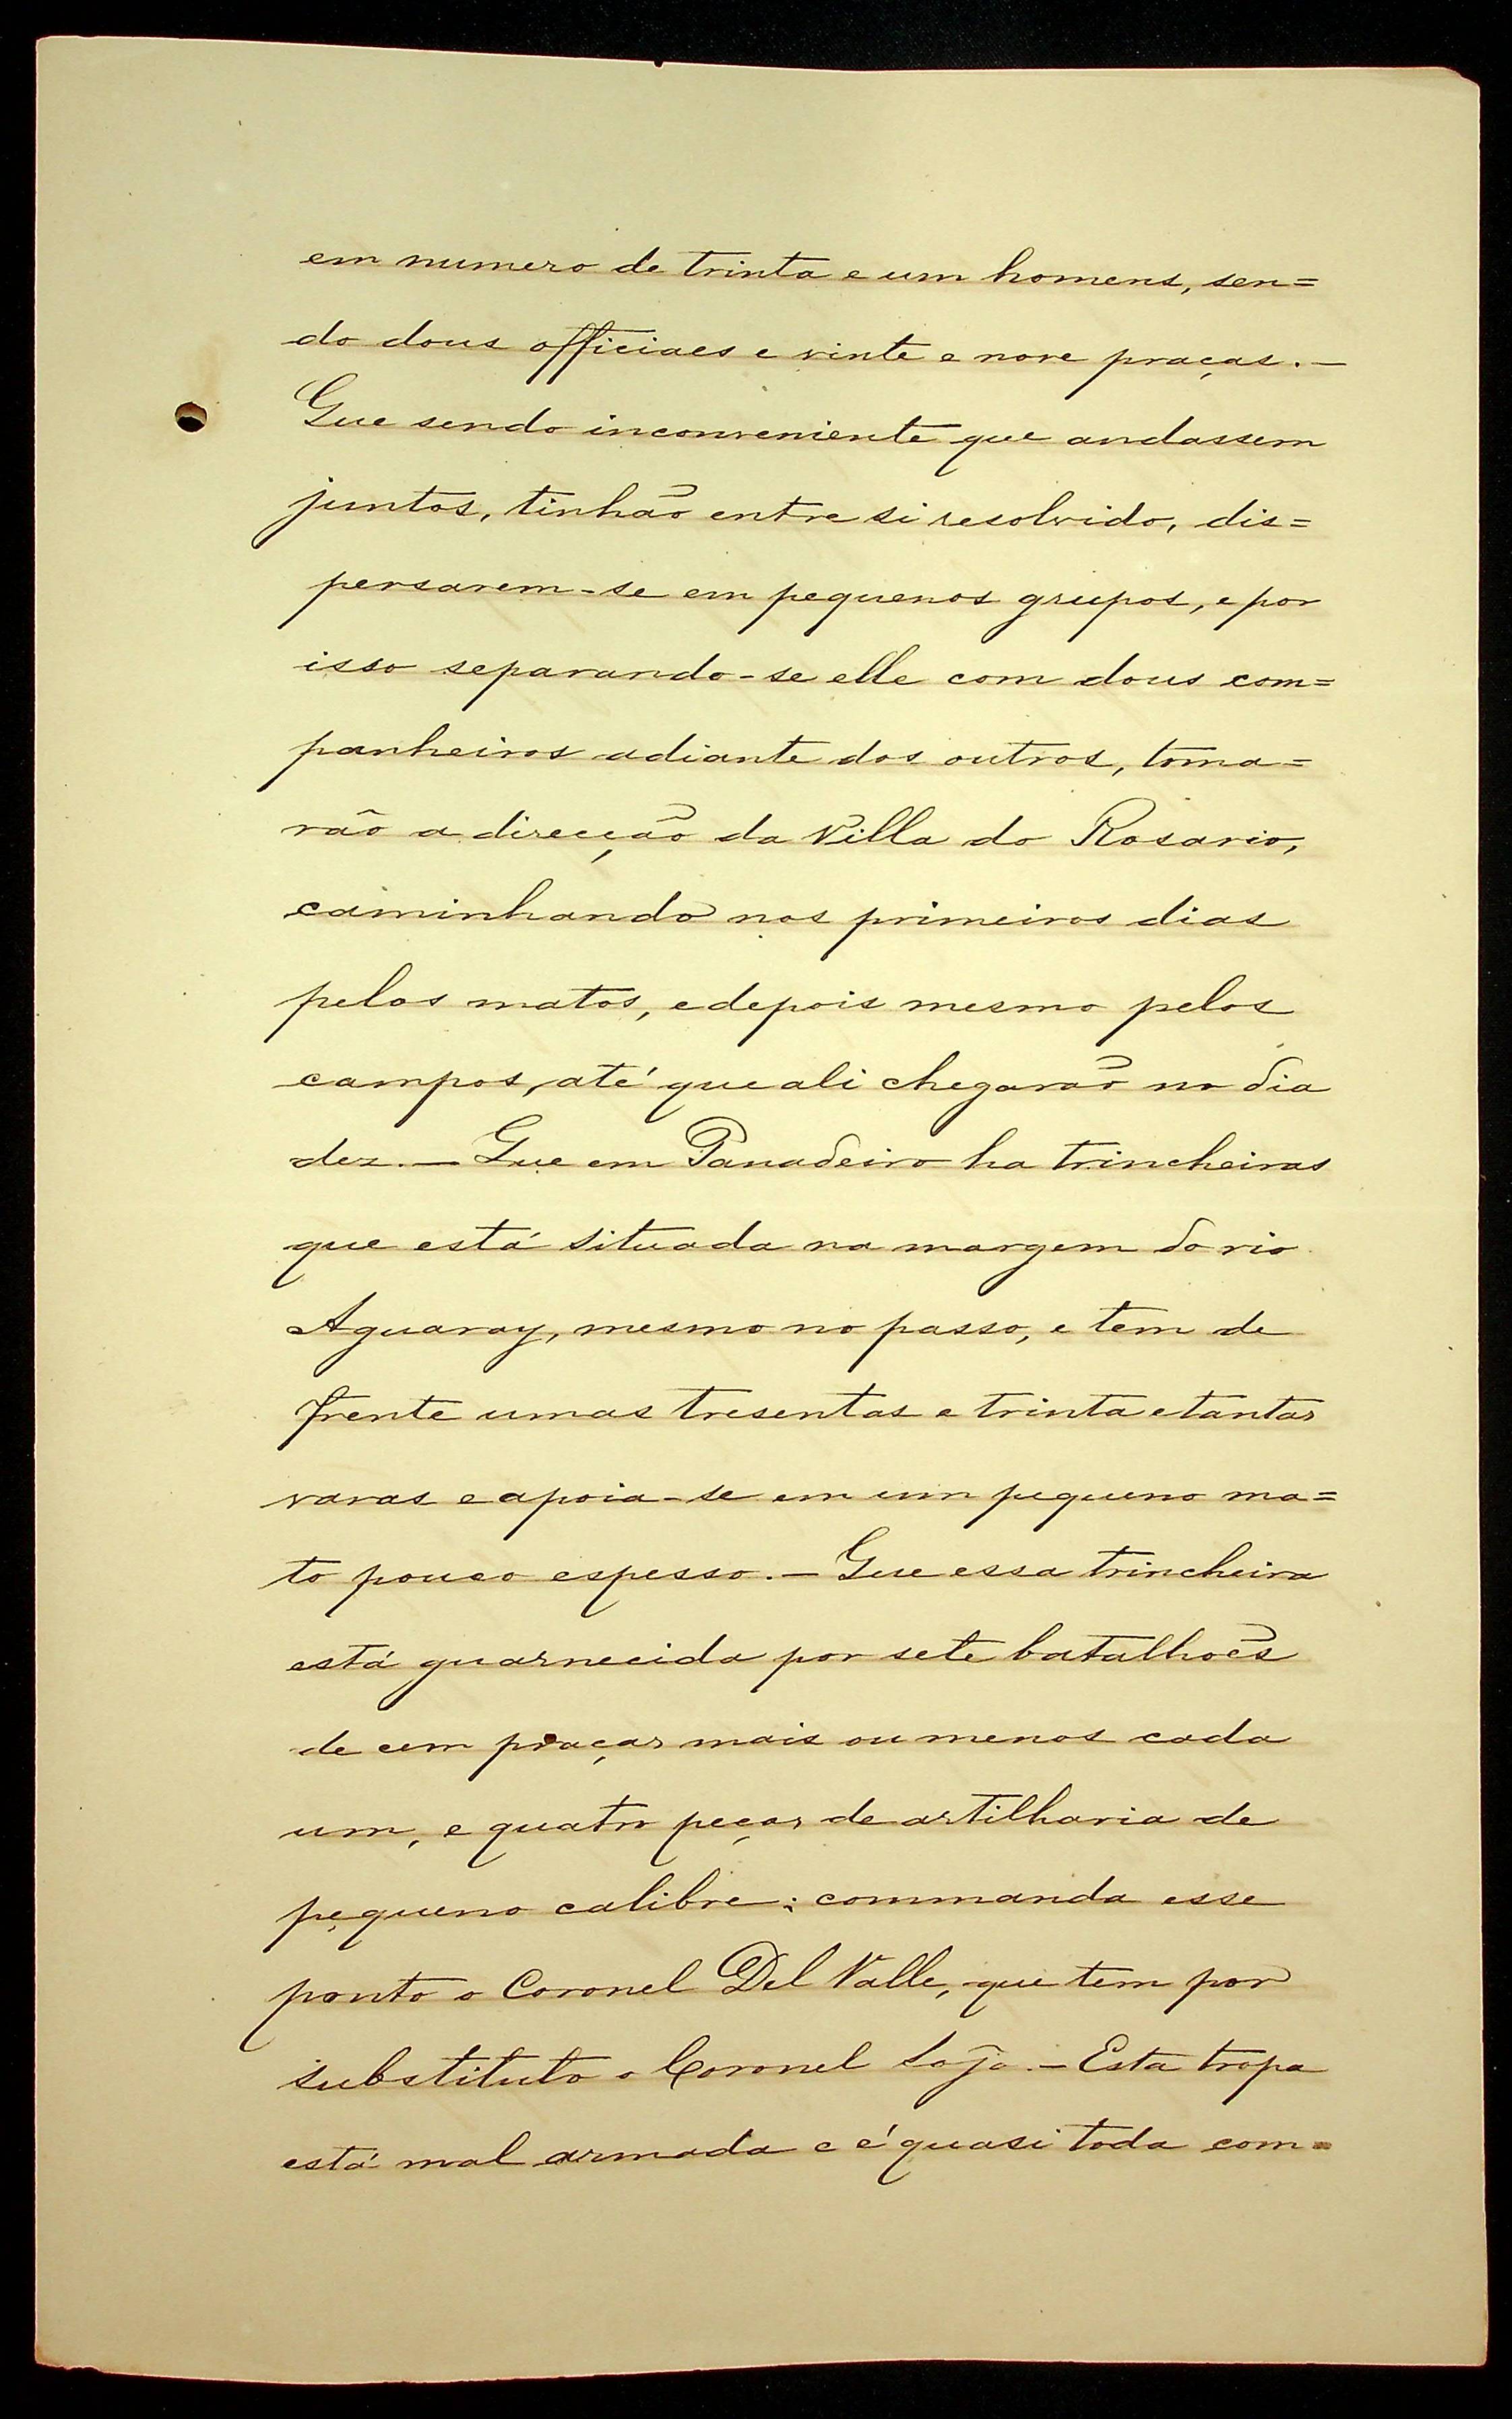 em numero de trinta e um homens, sen=
do dous officiaes e vinte e nove praças.—
Que sendo inconveniente que andassem
juntos, tinhão entre si resolvido, dis=
persarem-se em pequenos grupos, e por
isso separando-se elle com dous com=
panheiros adiante dos outros, toma=
rão a direcção da Villa do Rosario,
caminhando nos primeiros dias
pelos matos, e depois mesmo pelos
campos, até que ali chegarão no dia
dez.— Que em Panadeiro ha trincheiras
que está situada na margem do rio
Aguaray, mesmo no passo, e tem de
frente umas tresentas e trinta e tantas
varas e apoia-se em um pequeno ma=
to pouco espesso.— Que essa trincheira
está guarnecida por sete batalhões
de cem praças mais ou menos cada
um, e quatro peças de artilharia de
pequeno calibre; commanda esse
ponto o Coronel Del Valle, que tem por
substituto o Coronel Sosa.— Esta tropa
está mal armada e é quasi toda com=